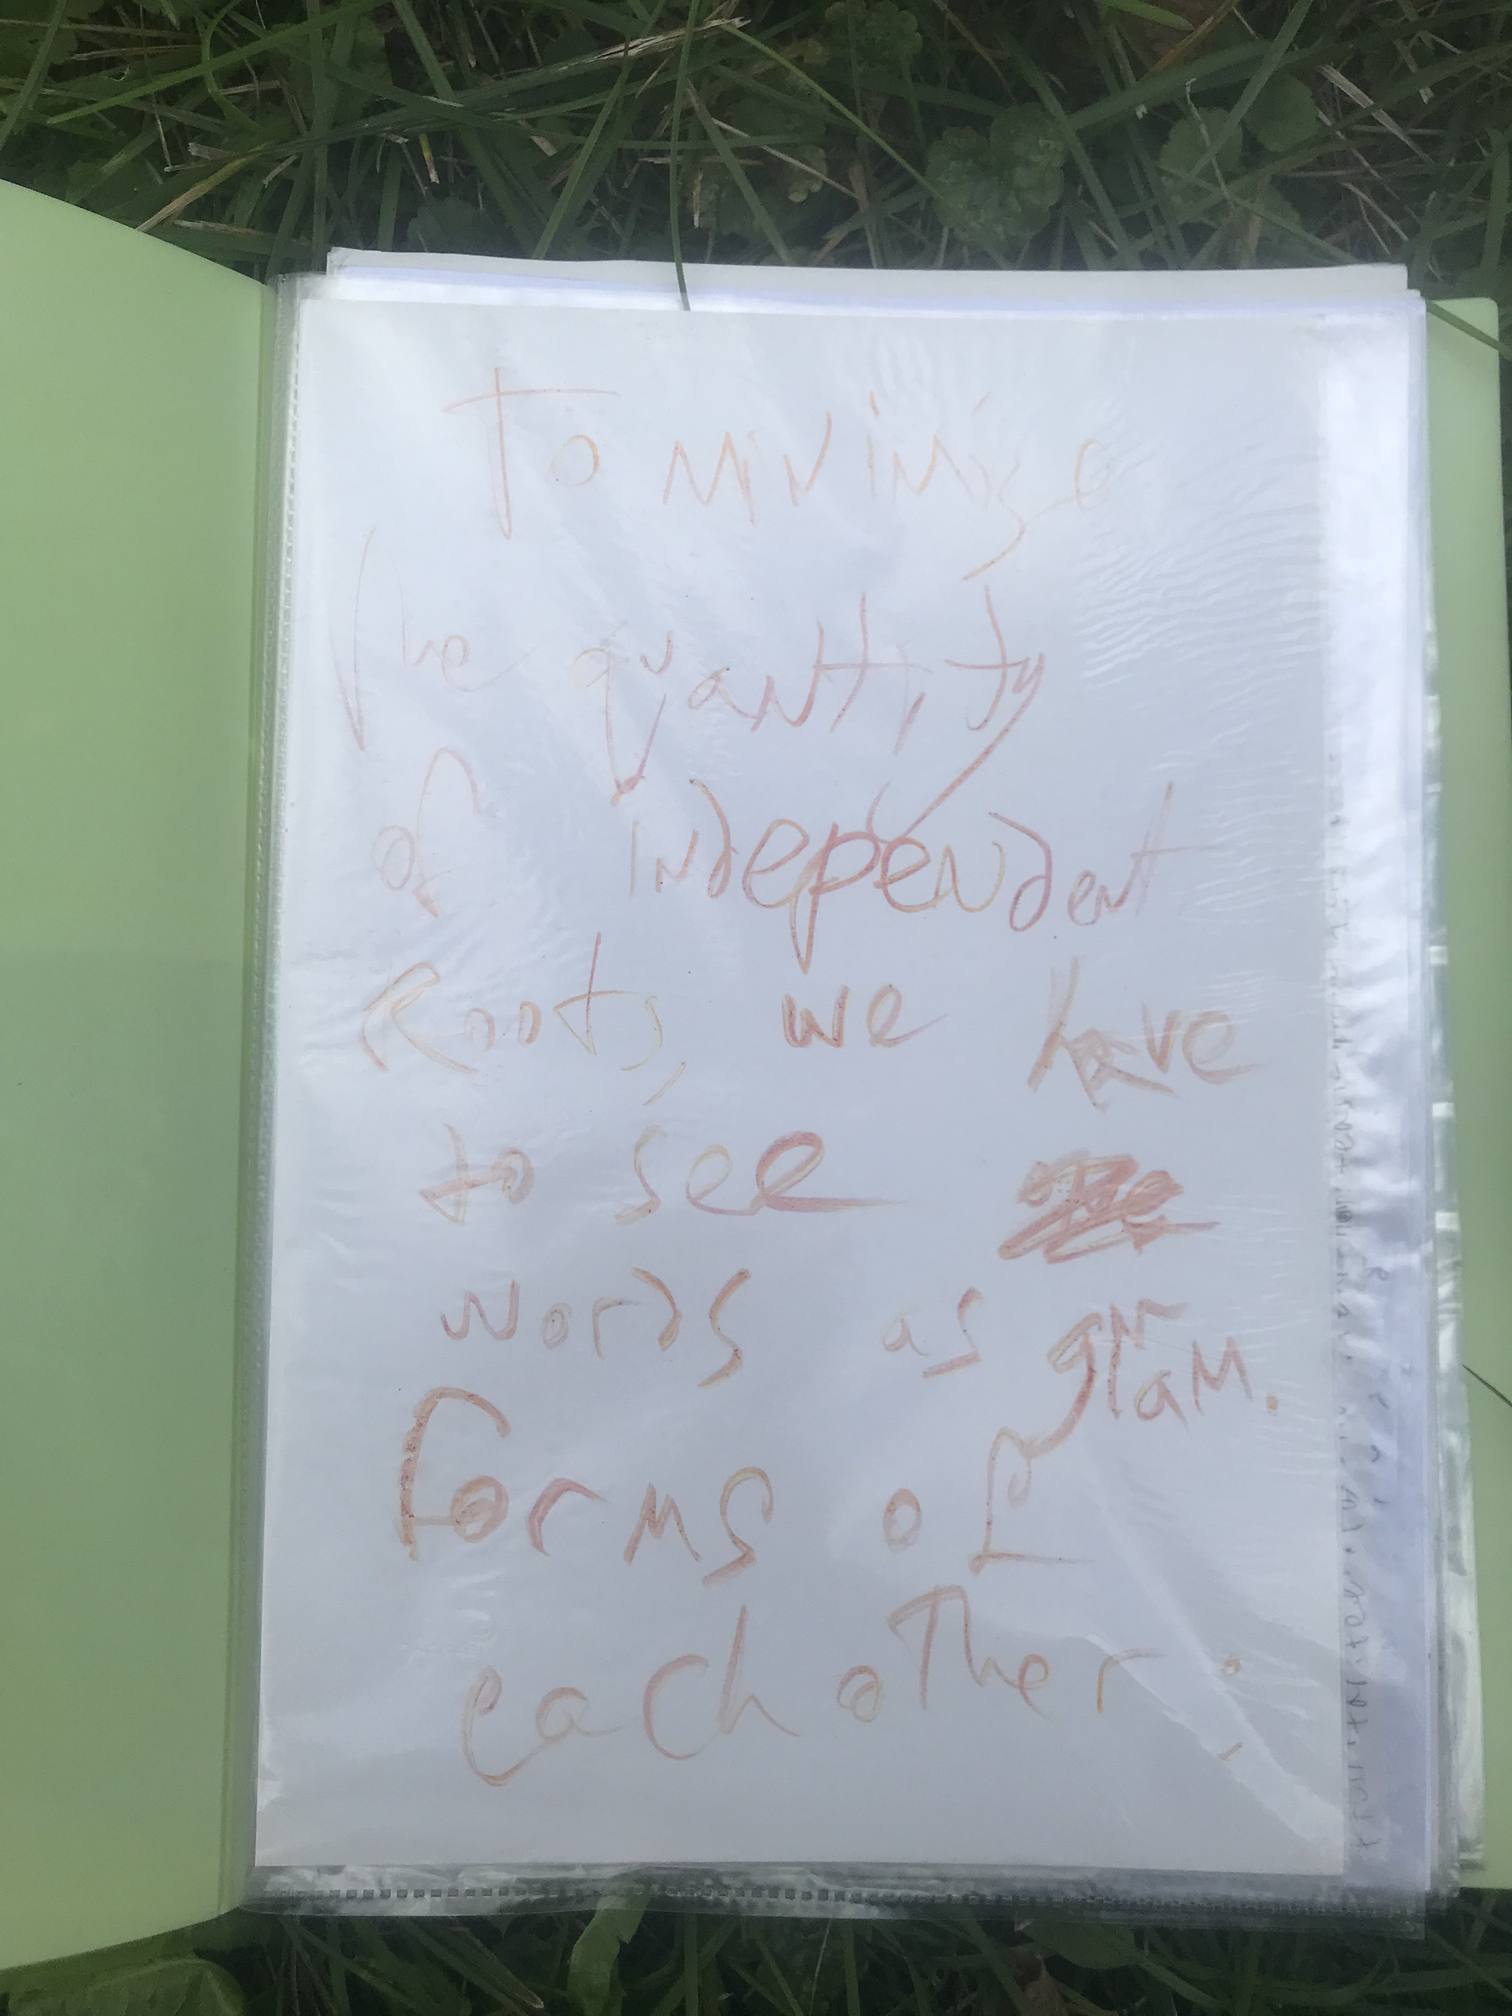 To minimize
the quantity
of independent
Roots, we have
to see
words as gram.
forms of
each other: